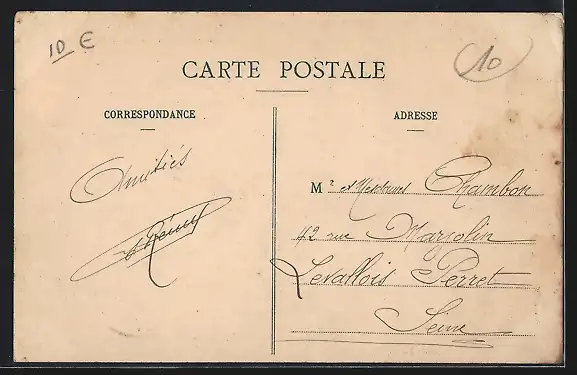 10 €
10
CARTE POSTALE
CORRESPONDANCE
ADRESSE
Amitiés
M r et Mesdames Chambon
42 rue Marjolin
Levallois Perret
Seine